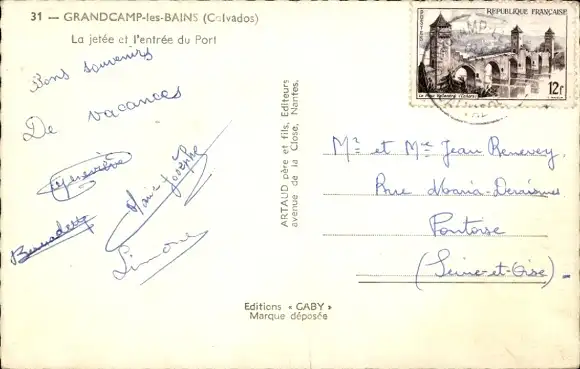 31 — GRANDCAMP-les-BAINS (Calvados)
La jetée et l'entrée du Port
Bons souvenirs
De vacances
Geneviève
Marie Josèphe
Bernadette
Simone
ARTAUD père et fils, Editeurs
avenue de la Close, Nantes,
Editions « GABY »
Marque déposée
POSTES
REPUBLIQUE FRANÇAISE
12F
Mr et Mme Jean Renevey
Rue Maria-Deraismes
Pontoise
(Seine-et-Oise)